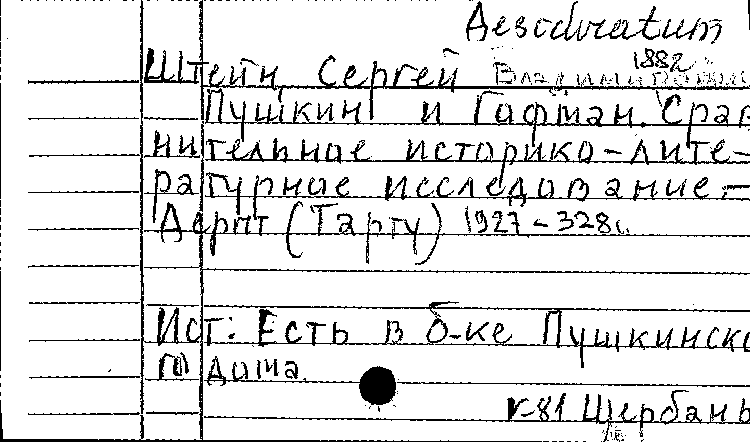 Дезидеrатum
1882
Штейн, Сергей Владимирович
Пушкин и Гофман. Срав
нительное историко-лите-
ратурное исследование. —
Дерпт (Тарту) 1927 - 328с.
Ист: Есть в б-ке Пушкинско
го дома.
к-81 Щербань